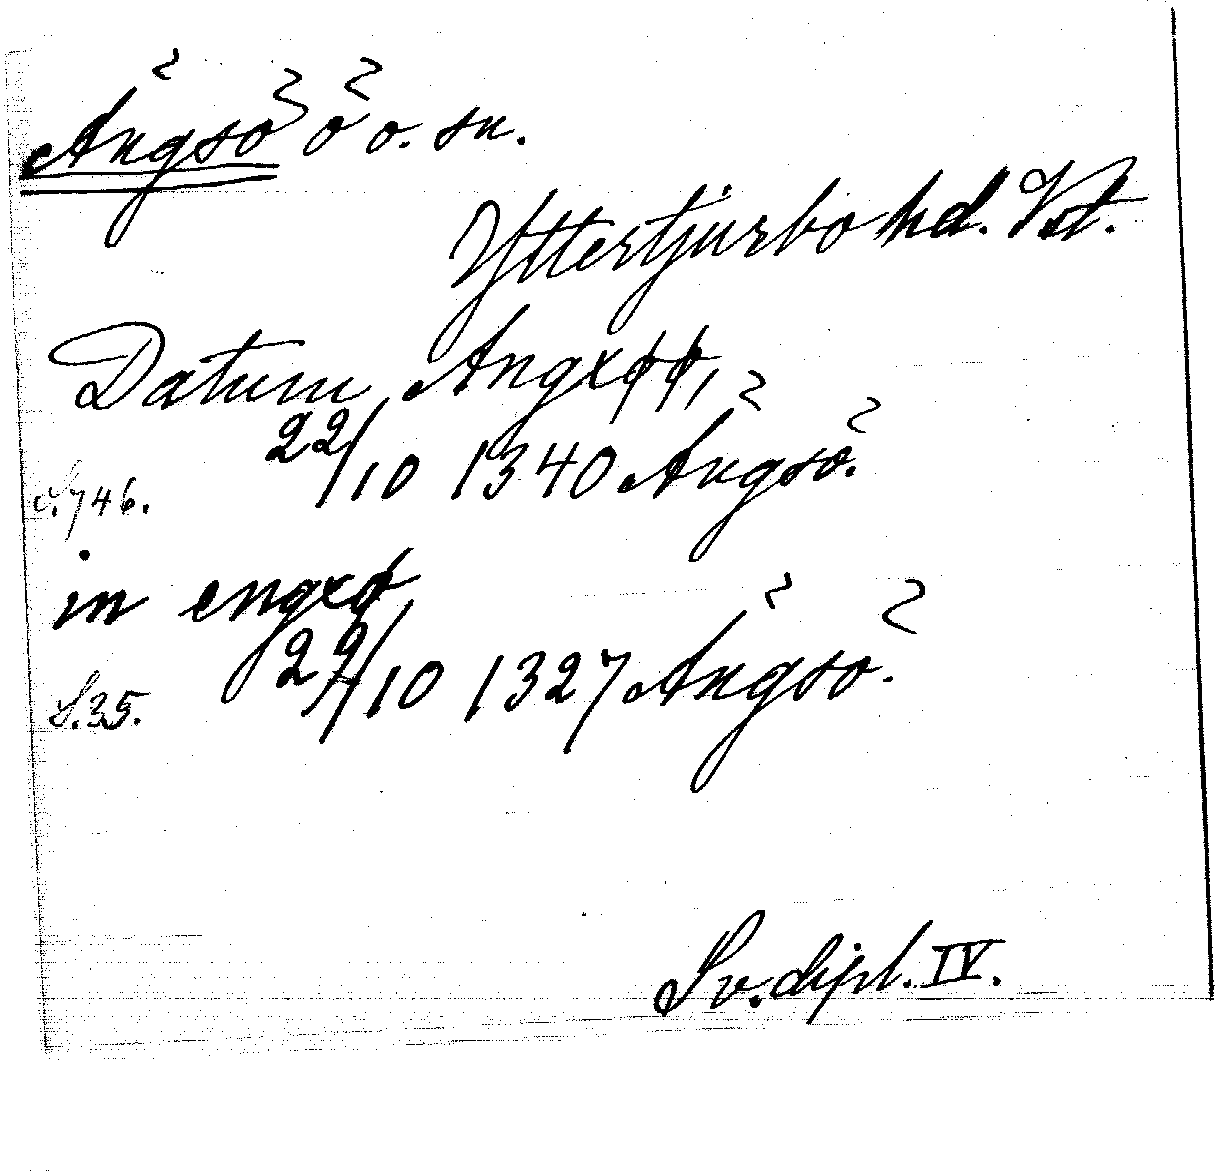 Ängsö ö o. sn.
Yttertjurbo hd. Vst.
Datum Angxøø,
22/10 1340 Ängsö.
S.746.
in engxø
22/10 1327 Ängsö.
S.35.
Sv. dipl. IV.